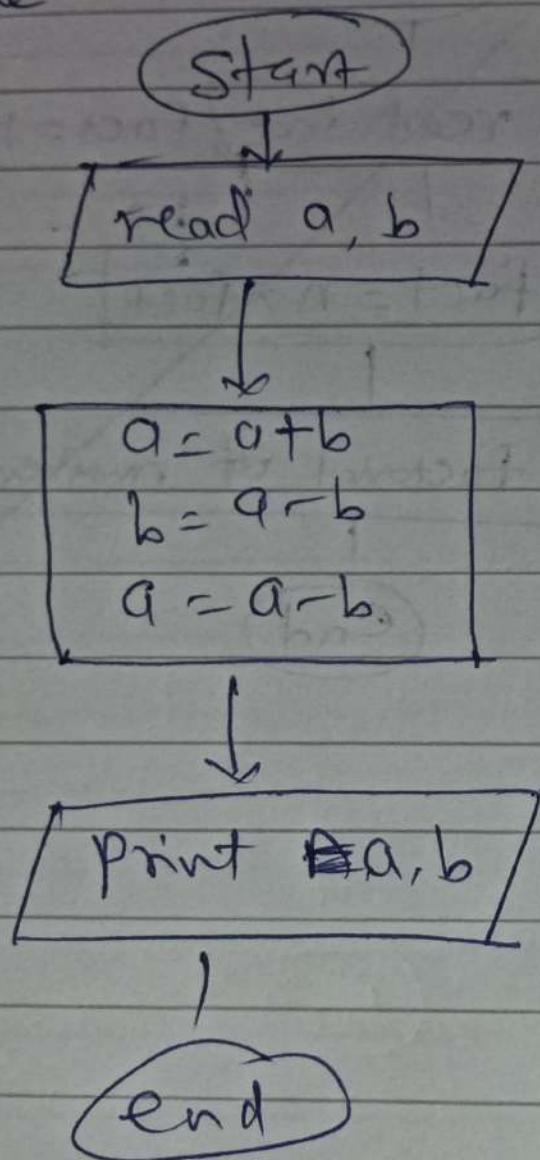 Start
read a, b
a = a+b
b = a-b
a = a-b.
print a, b
end